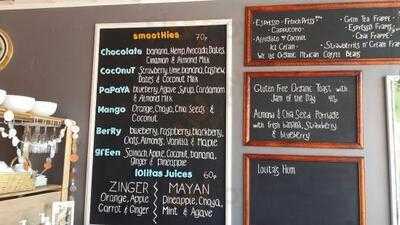 smoothies 70p
Chocolate banana, Hemp, Avocado, Dates, Cinnamon & Almond Milk
Coconut Strawberry, Lime, banana, Cashew, Dates & Coconut Milk
Papaya blueberry, Agave, Syrup, Cardamom & Almond Milk
Mango Orange, Chaya, Chia Seeds & Coconut
Berry blueberry, Raspberry, blackberry, Oats, Almonds, Vanilla & Maple
green Spinach, Apple, Coconut, banana, Ginger & Pineapple
lolitas Juices 60p
ZINGER
Orange, Apple, Carrot & Ginger
MAYAN
Pineapple, Chaya, Mint & Agave
Espresso - French Press
Cappuccino
Americano w Coconut
Ice Cream
Green Tea Frappe
Chai Frappe
Strawberries n' Cream Frappe
We use Organic Mexican Coffee Beans
Gluten Free Organic Toast with
Jam of the Day
Almond & Chia Seed Porridge
with fresh banana, Strawberry
& blueberry
Lolita's Hum